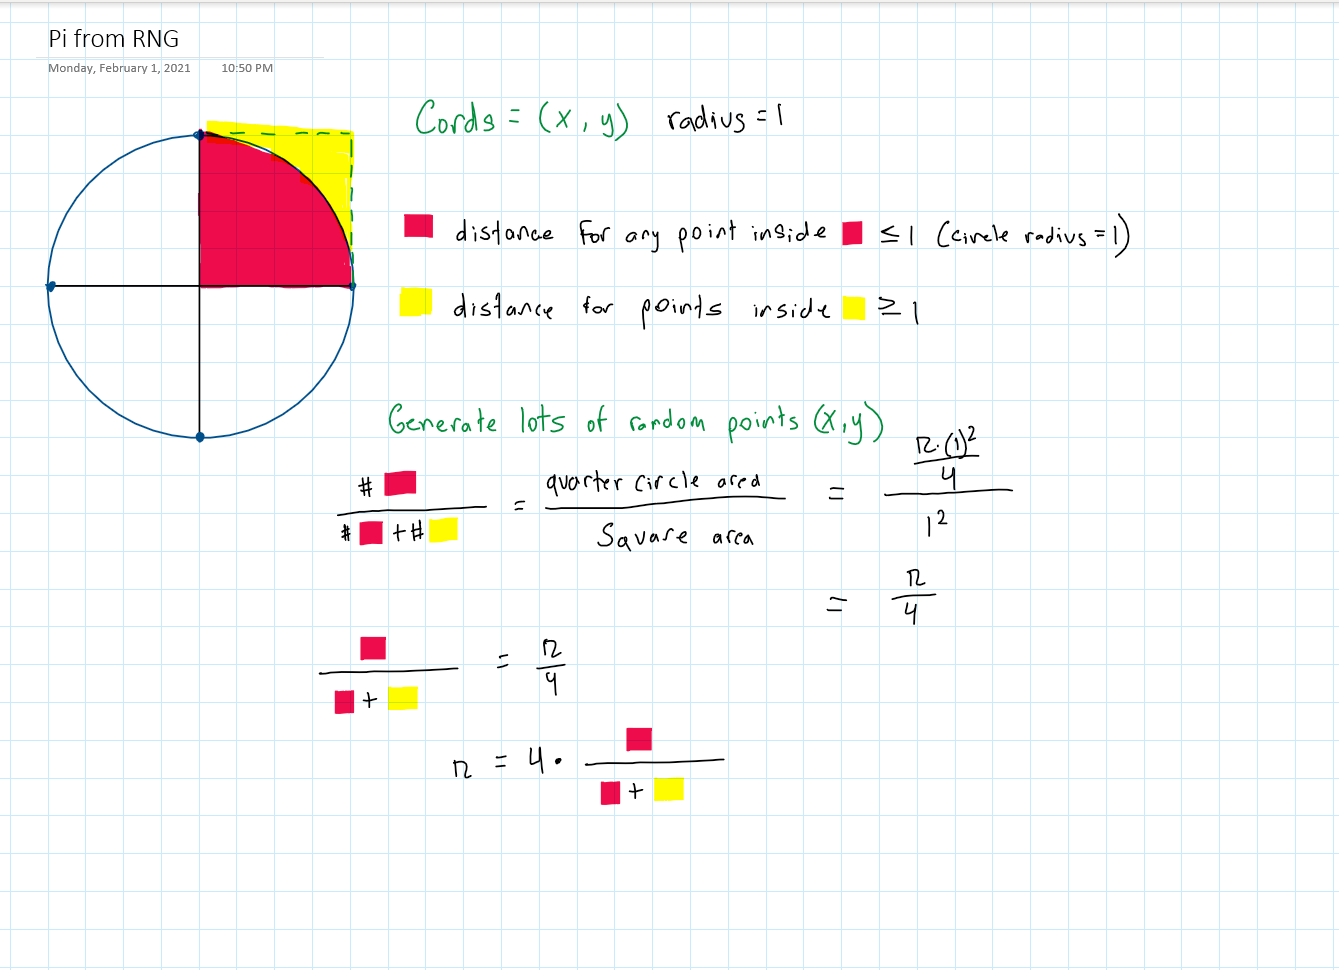 Pi from RNG
Monday, February 1, 2021 10:50 PM
Cords = (x, y) radius = 1
distance for any point inside ≤ 1 (circle radius = 1)
distance for points inside ≥ 1
Generate lots of random points (x, y)
# / (# + #) = quarter circle area / Square area = (π·(1)² / 4) / 1²
= π / 4
/ ( + ) = π / 4
π = 4 · / ( + )